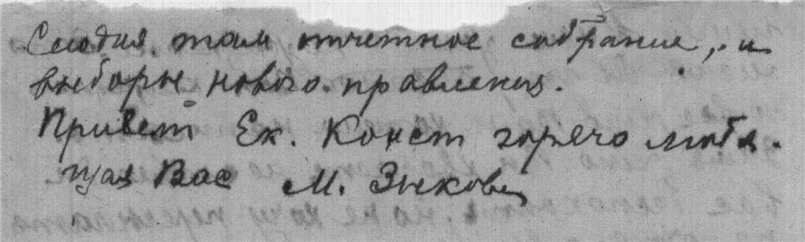 Сегодня там отчетное собрание, и
выборы нового правления.
Привет Ек. Конст горячо любя-
щая Вас М. Зыкова